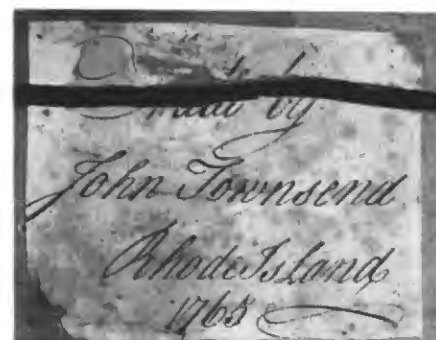 made by
John Townsend
Rhode Island
1765